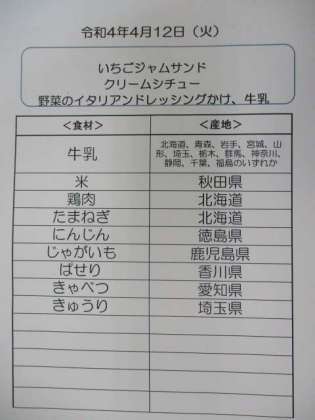 令和4年4月12日（火）
いちごジャムサンド
クリームシチュー
野菜のイタリアンドレッシングかけ、牛乳
＜食材＞ ＜産地＞
北海道、青森、岩手、宮城、山
牛乳 形、埼玉、栃木、群馬、神奈川、
静岡、千葉、福島のいずれか
米 秋田県
鶏肉 北海道
たまねぎ 北海道
にんじん 徳島県
じゃがいも 鹿児島県
ぱせり 香川県
きゃべつ 愛知県
きゅうり 埼玉県